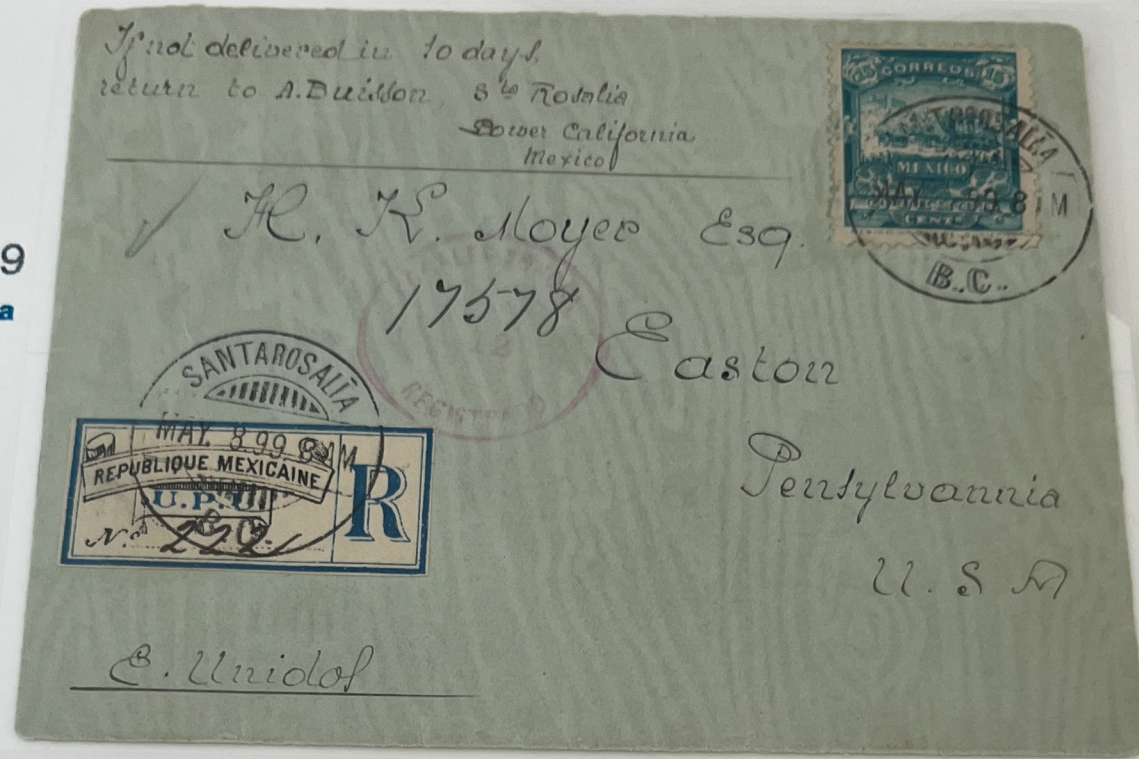 If not delivered in 10 days.
return to A. Buisson, Sta Rosalia
Lower California
Mexico
15 CORREOS 15
MEXICO
CENTS
SANTAROSALIA
MAY. 8 M
B.C.
H. K. Moyer Esq.
17578
Easton
Pensylvannia
U. S A
REGISTERED
SANTAROSALIA
MAY. 8.99 8 AM
REPUBLIQUE MEXICAINE
U.P.U.
R
N.o 222
E. Unidos
9
a